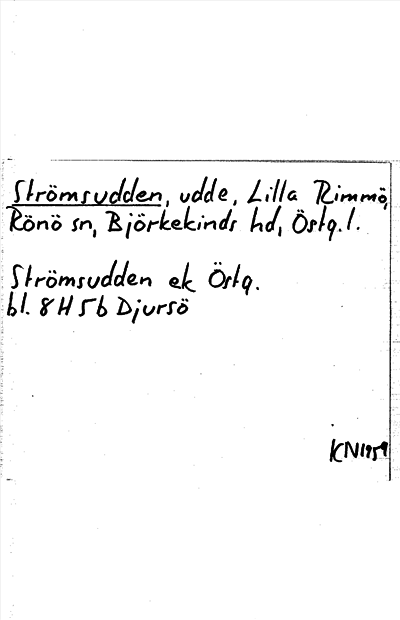 Strömsudden, udde, Lilla Rimmö,
Rönö sn, Björkekinds hd, Östg.l.
Strömsudden ek Östg.
bl. 8H5b Djursö
KN1959